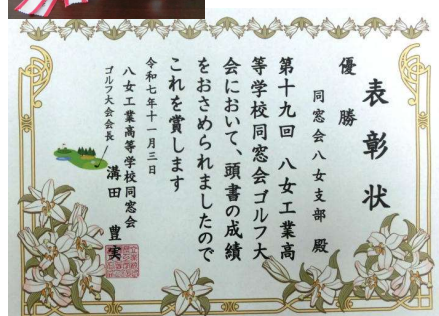 表彰状
優勝
同窓会八女支部 殿
第十九回 八女工業高
等学校同窓会ゴルフ大
会において、頭書の成績
をおさめられましたので
これを賞します
令和七年十一月三日
八女工業高等学校同窓会
ゴルフ大会会長 溝田 豊実